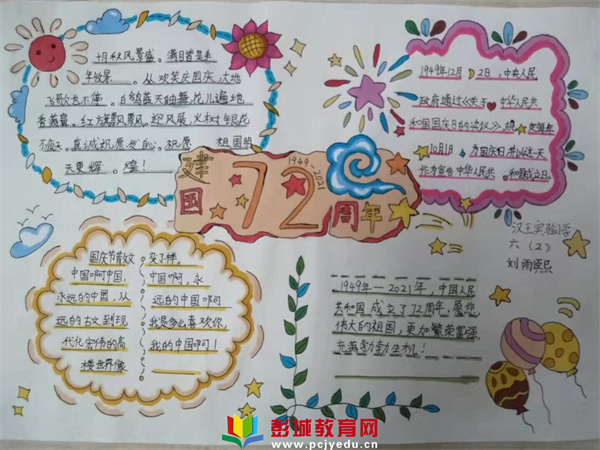 十月秋风景盛。满目皆是丰
年收景。从欢笑庆国庆,大地
飞歌也不停。白鸽蓝天曲舞花儿遍地
香蕊馨。红旗飘飘
祖国明
天更辉。煌!
1949年12月2日,中央人民
政府通过《关于中华人民共
和国国庆日的决议》规定每年
10月1日为国庆日并以这一天
作为宣中华人民共和国成立日。
建国72周年
1949-2021
汉王实验小学
六(2)
刘雨熙
国庆节散文
中国啊中国,
永远的中国,从
远的古文到现
代化宏伟的高
楼世界像
变了样。
中国啊,永
远的中国啊
我是多么喜欢你
我的中国啊!
1949年-2021年,中国人民
共和国成立了72周年,愿您
伟大的祖国,更加繁荣富强
充满勃勃生机!
彭城教育网
www.pcjyedu.cn